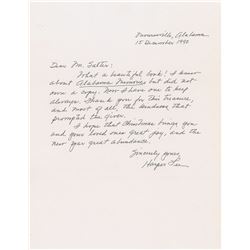 Monroeville, Alabama
15 December 1990
Dear Mr. Salter:
What a beautiful book! I knew
about Alabama Memories but did not
own a copy. Now I have one to keep
always. Thank you for this treasure,
and most of all, the kindness that
prompted the giver.
I hope that Christmas brings you
and your loved ones great joy, and the
new year great abundance.
Sincerely yours,
Harper Lee